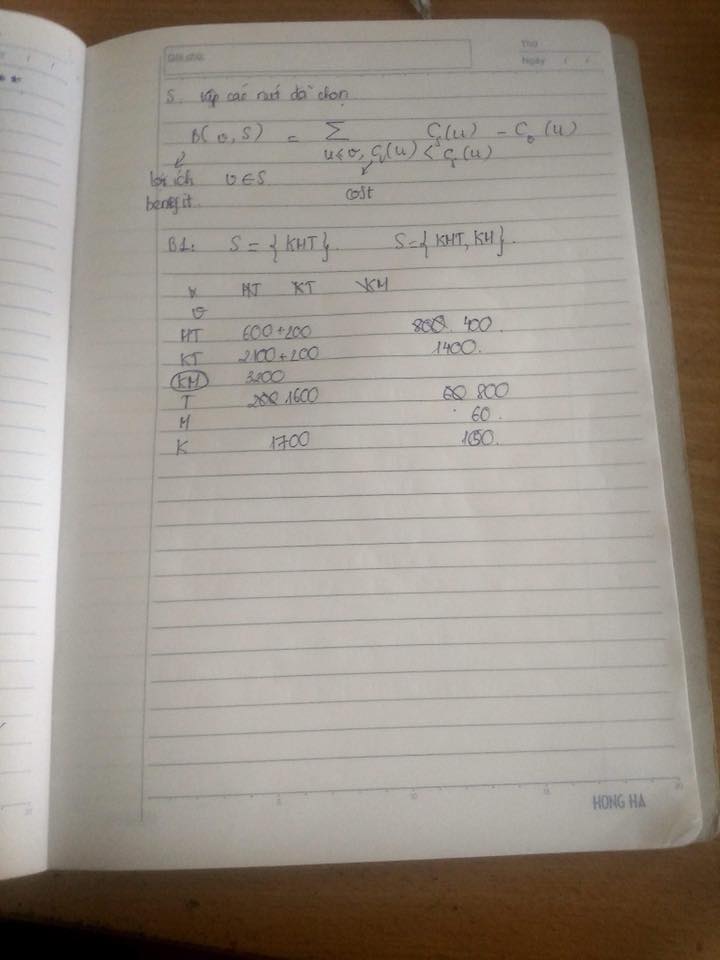 Ghi chú:
Thứ
Ngày / /
S. tập các nút đã chọn
B(v, S) = Σ C_S(u) - C_v(u)
u ≤ v, C_v(u) < C_S(u)
lợi ích v ∈ S
benefit cost
B1: S = {KHT} S = {KHT, KH}.
HT KT KH
v
HT 600+200 800 400
KT 2100+200 1400.
KH 3200
T 200 1600 60 800
H 60.
K 1700
5 10 15 20
HONG HA